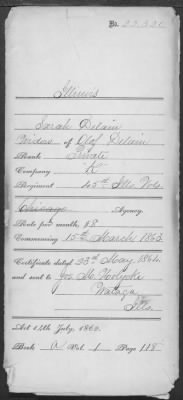 No. 22.321
Illinois
Sarah Delain
Widow of Olof Delain
Rank Private
Company K
Regiment 45th Ills Vols
Chicago Agency.
Rate per month, $8
Commencing 15th March 1863.
Certificate dated 23d May 1864
and sent to Jos. M. Holyoke
Wataga
Ills.
Act 14th July, 1862.
Book A Vol. 1 Page 118